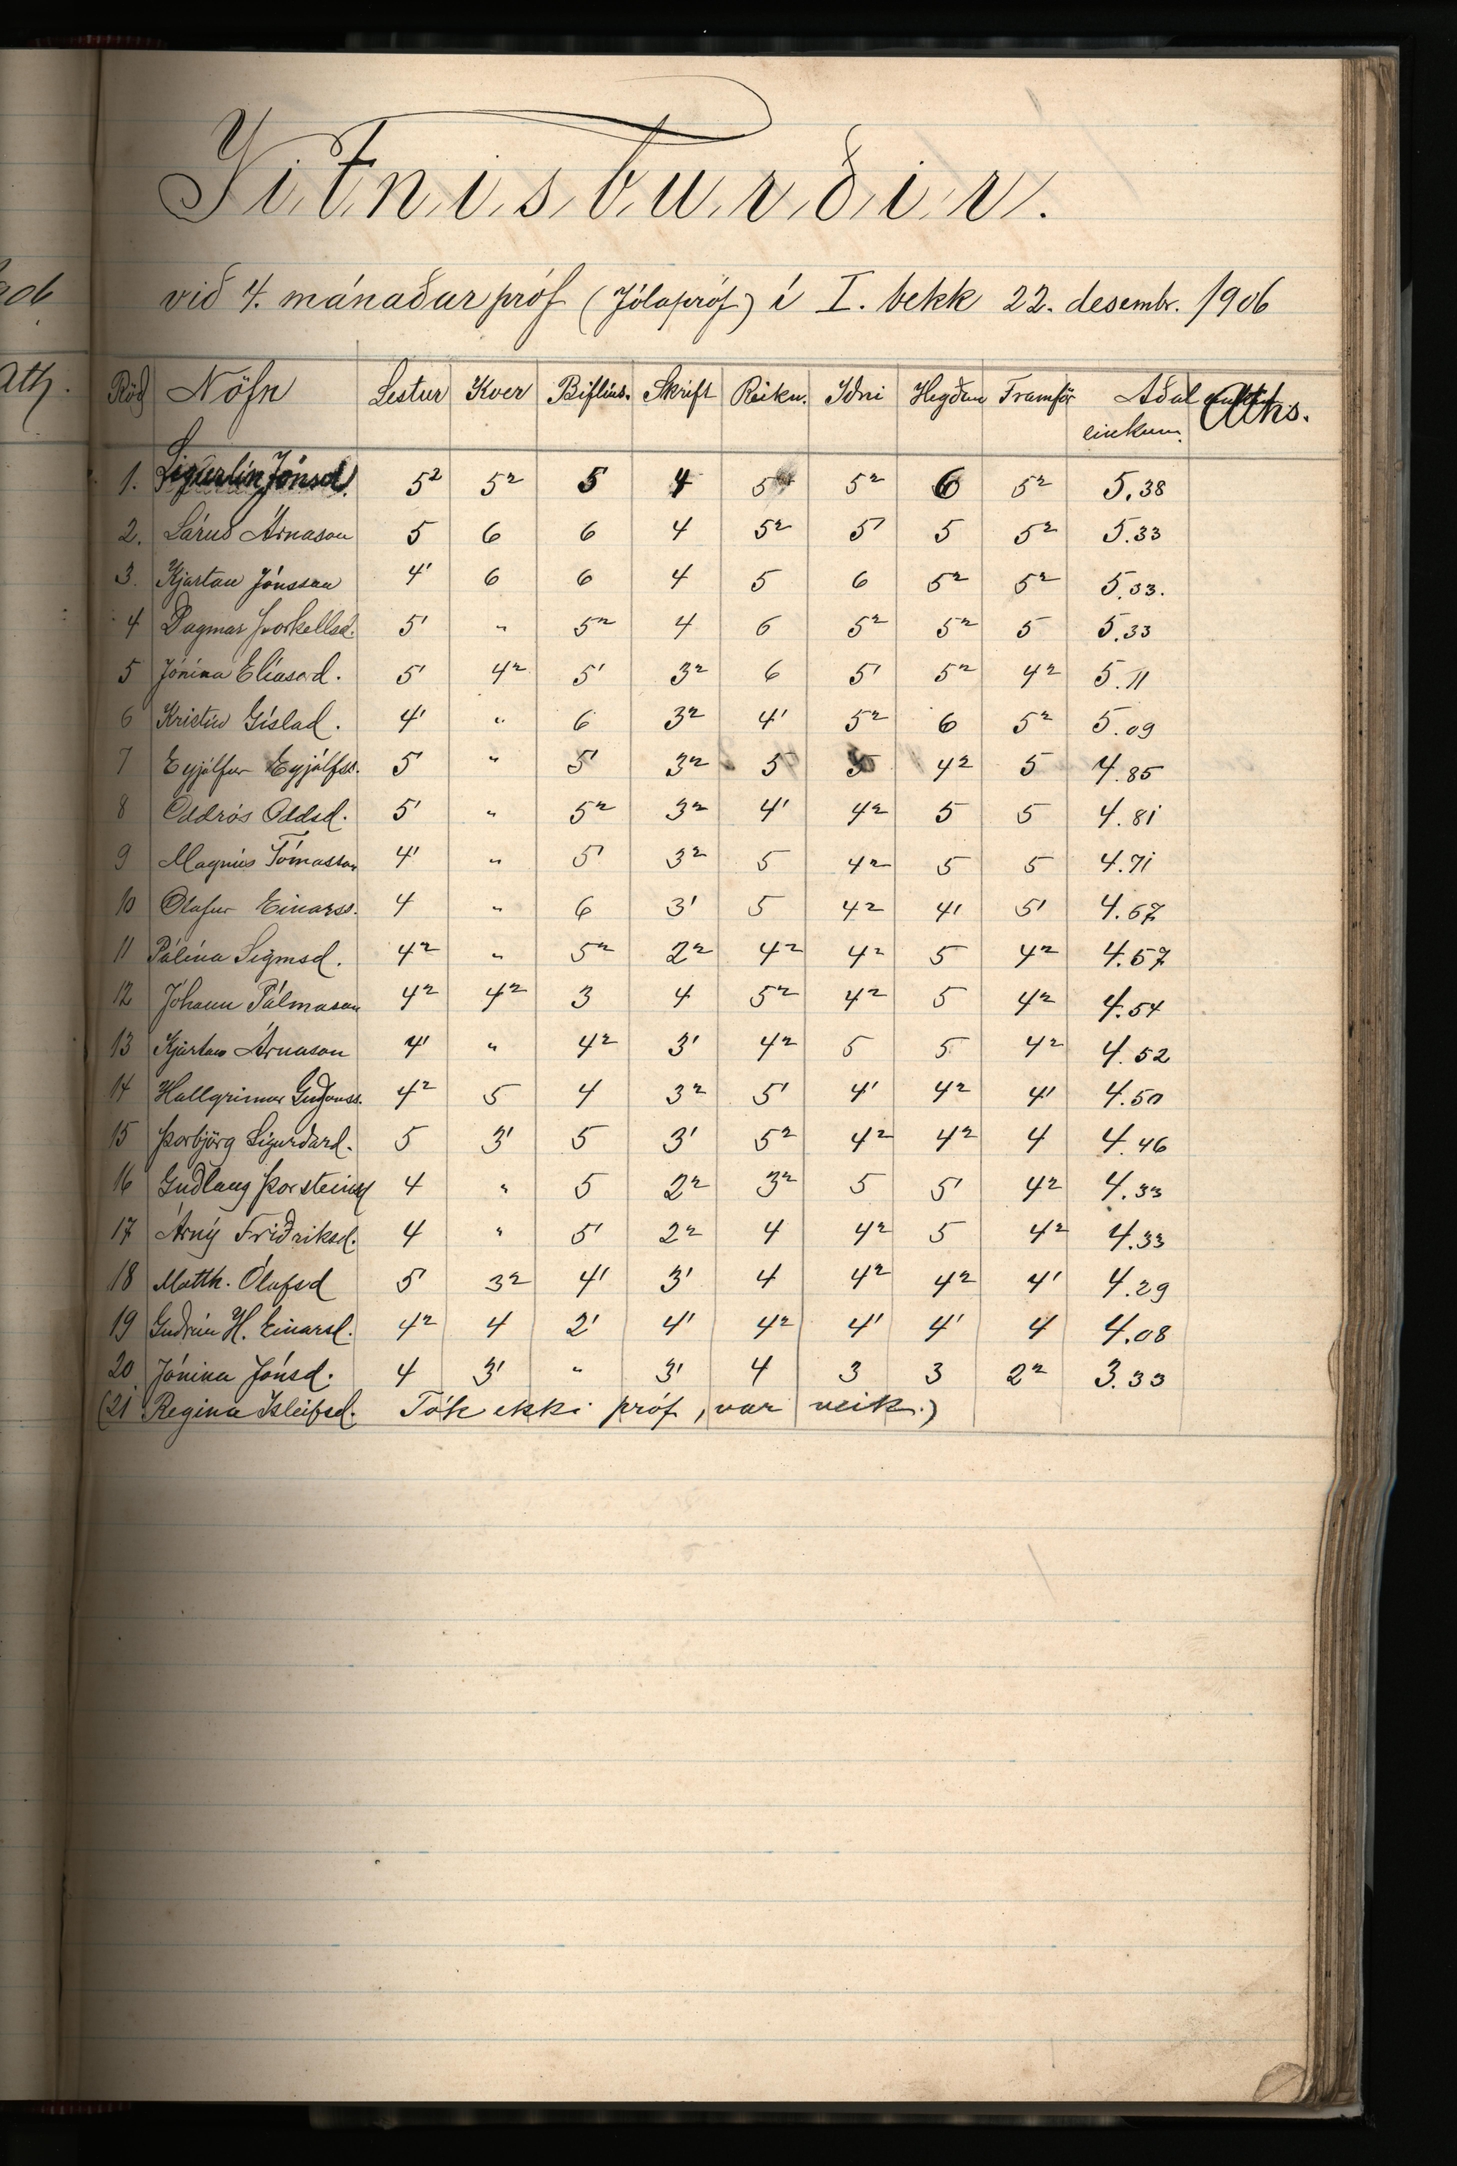 Vitnisburðir.
við 4. mánaðar próf (Jólapróf) í I. bekk 22. desembr. 1906
Röð Nöfn Lestur Kver Biflíus. Skrift Reikn. Iðni Hegðun Framför Aðal einkunn. Aths.
1. Sigurlín Jónsd. 5² 5² 5 4 5 5² 6 5² 5.38
2. Lárus Árnason 5 6 6 4 5² 5' 5 5² 5.33
3. Kjartan Jónsson 4' 6 6 4 5 6 5² 5² 5.33.
4 Dagmar Þorkellsd. 5' " 5² 4 6 5² 5² 5 5.33
5 Jónína Elíasard. 5' 4² 5' 3² 6 5' 5² 4² 5.11
6 Kristín Gíslad. 4' " 6 3² 4' 5² 6 5² 5.09
7 Eyjólfur Eyjólfss. 5' " 5' 3² 5 5 4² 5 4.85
8 Oddrós Oddsd. 5' " 5² 3² 4' 4² 5 5 4.81
9 Magnús Tómasson 4' " 5' 3² 5 4² 5 5 4.71
10 Ólafur Einarss. 4 " 6 3' 5 4² 4' 5' 4.67
11 Pálína Sigmsd. 4² " 5² 2² 4² 4² 5 4² 4.67
12 Jóhann Pálmason 4² 4² 3 4 5² 4² 5 4² 4.54
13 Kjartan Árnason 4' " 4² 3' 4² 5 5 4² 4.52
14 Hallgrímur Guðjónss. 4² 5 4 3² 5' 4' 4² 4' 4.50
15 Þorbjörg Sigurðard. 5 3' 5 3' 5² 4² 4² 4 4.46
16 Guðlaug Þorsteinsd 4 " 5 2² 3² 5 5' 4² 4.33
17 Árný Friðriksd. 4 " 5' 2² 4 4² 5 4² 4.33
18 Matth. Ólafsd 5' 3² 4' 3' 4 4² 4² 4' 4.29
19 Guðrún H. Einarsd. 4² 4 2' 4' 4² 4' 4' 4 4.08
20 Jónína Jónsd. 4 3' " 3' 4 3 3 2² 3.33
(21 Regina Ísleifsd. Tók ekki próf, var veik.)